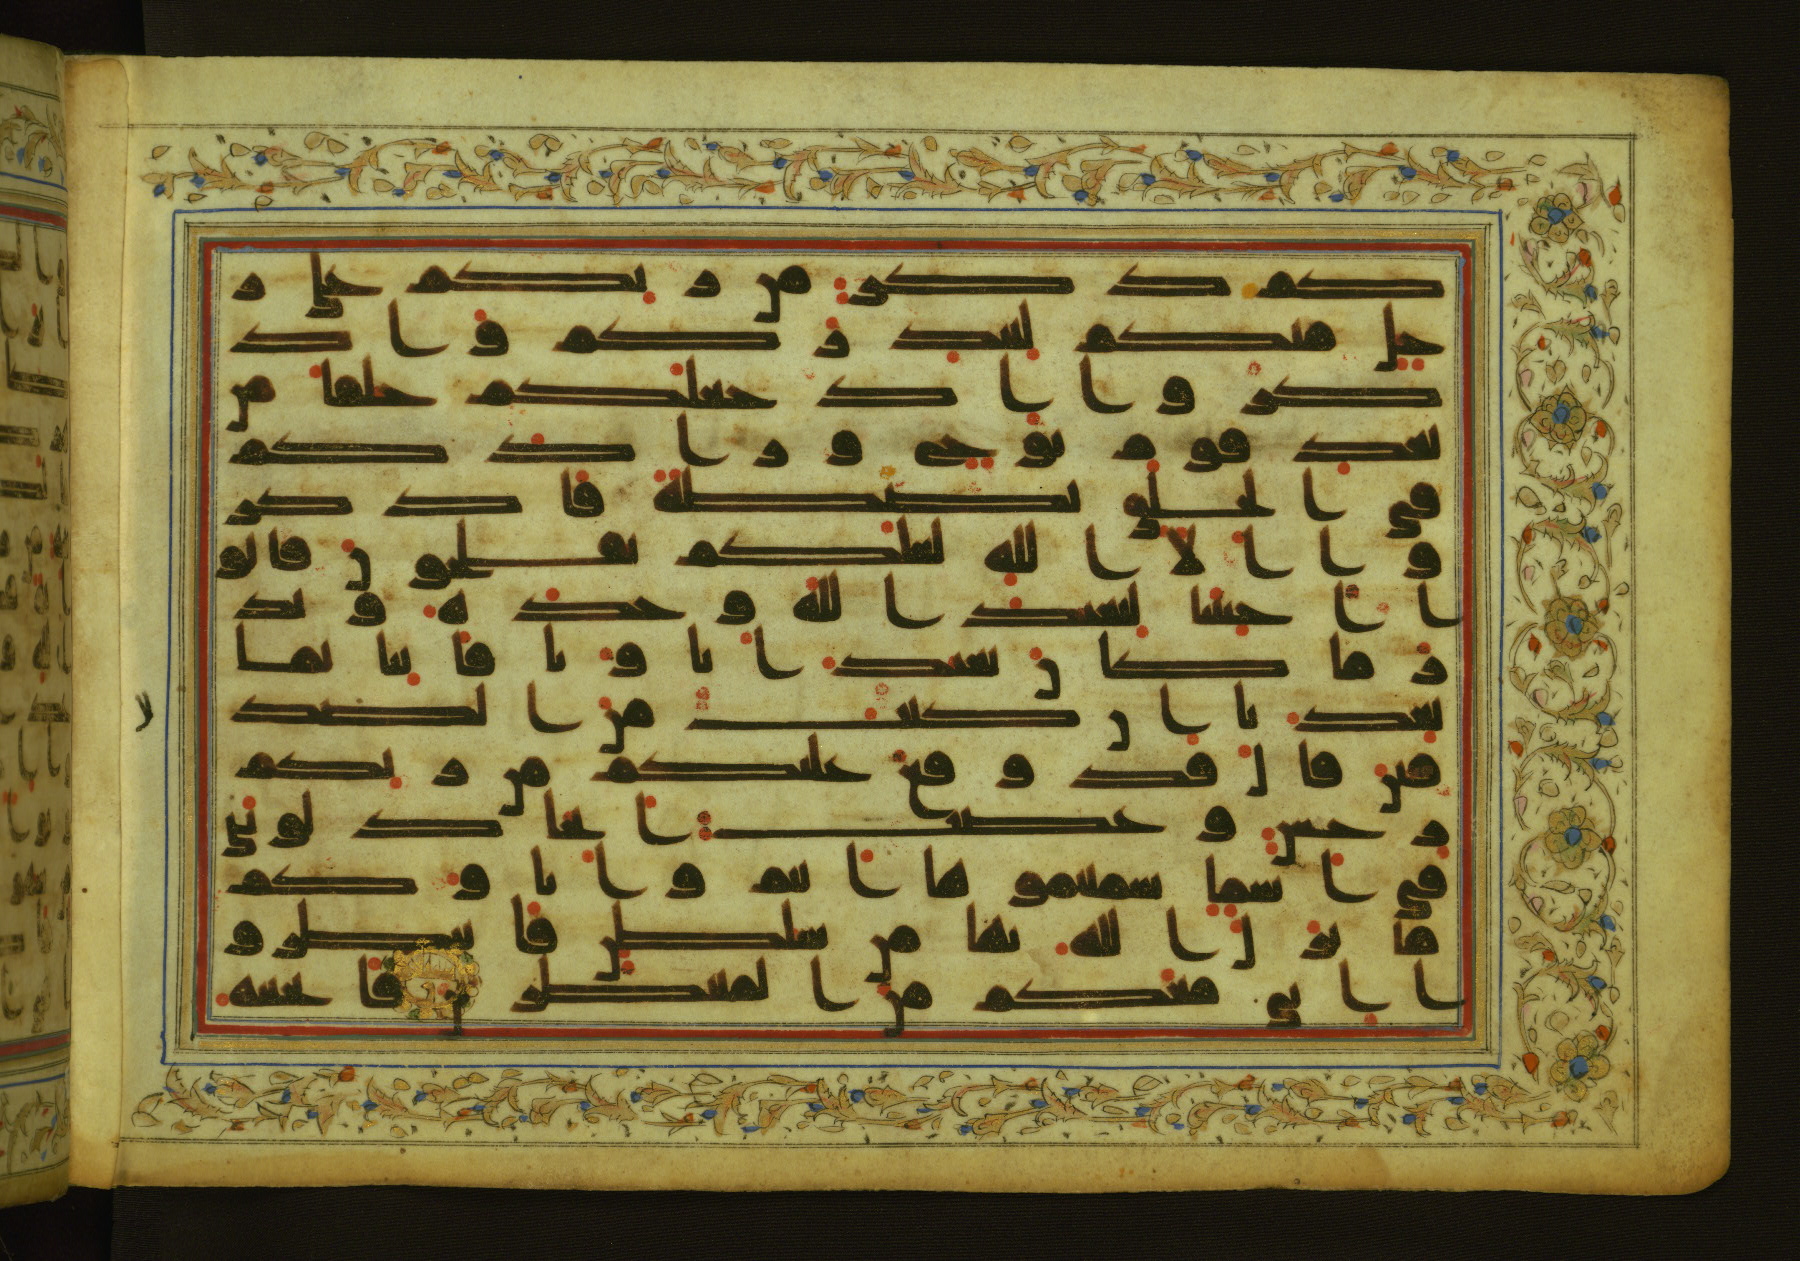 كم ذكر من ربكم على ر
جل منكم لينذركم واذ
كروا اذ جعلكم خلفا من
بعد قوم نوح وزادكم
في الخلق بصطة فاذكر
وا الا الله لعلكم تفلحون قالو
ا اجئتنا لنعبد الله وحده ونذ
ر ما كان يعبد اباونا فاتنا بما
تعدنا ان كنت من الصد
قين قال قد وقع عليكم من ربكم
رجس وغضب اتجدلونني
في اسما سميتموها انتم واباوكم
ما نزل الله بها من سلطن فانتظرو
ا اني معكم من المنتظرين فانجينه